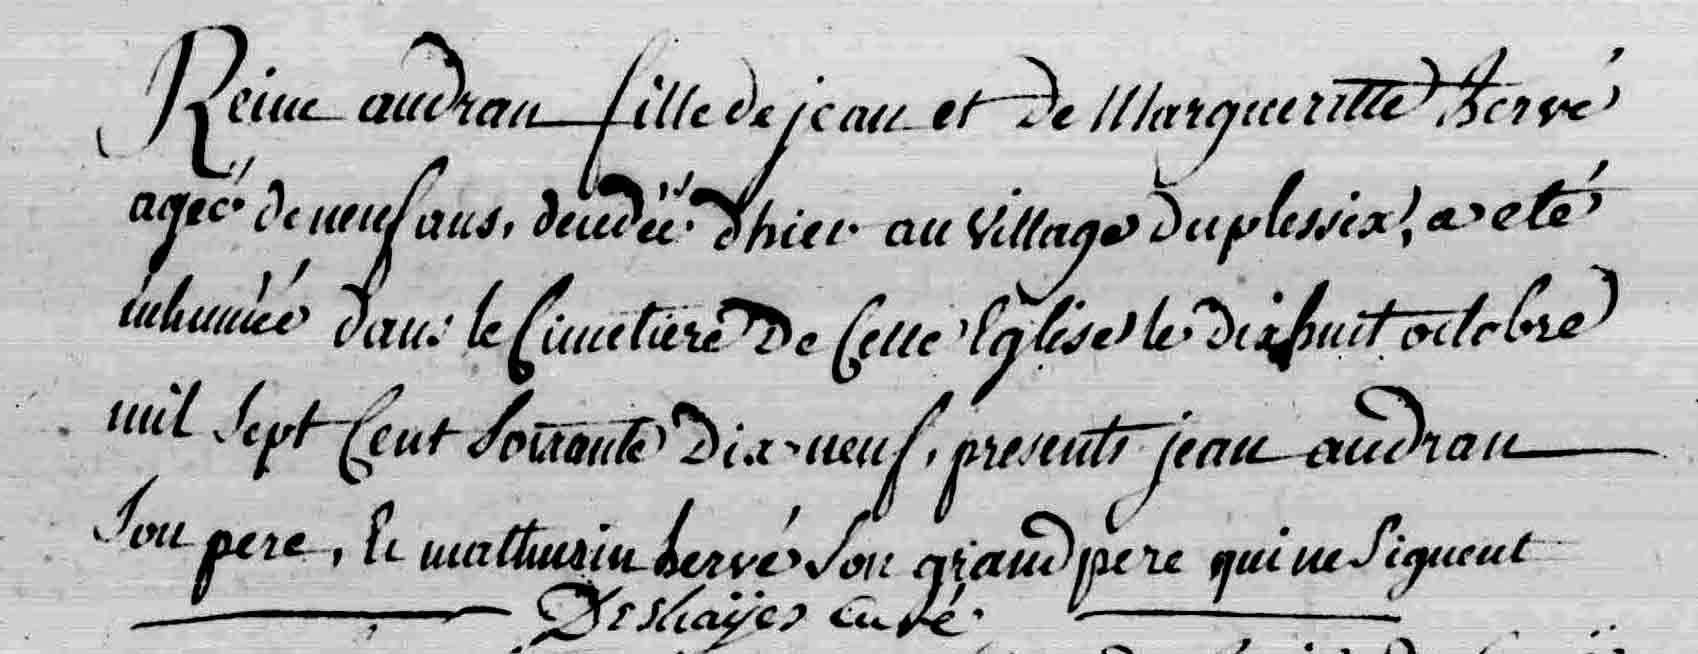 Reine audran fille de jean et de Margueritte hervé
ageé de neuf ans, decedée d'hier au village duplessix, a eté
inhumée dans le Cimetiere De Cette Eglise le dixhuit octobre
mil sept Cent Soixante Dix-neuf, presents jean audran
Son pere, Et mathurin hervé Son grand pere qui ne Signent
Deshaÿes Curé